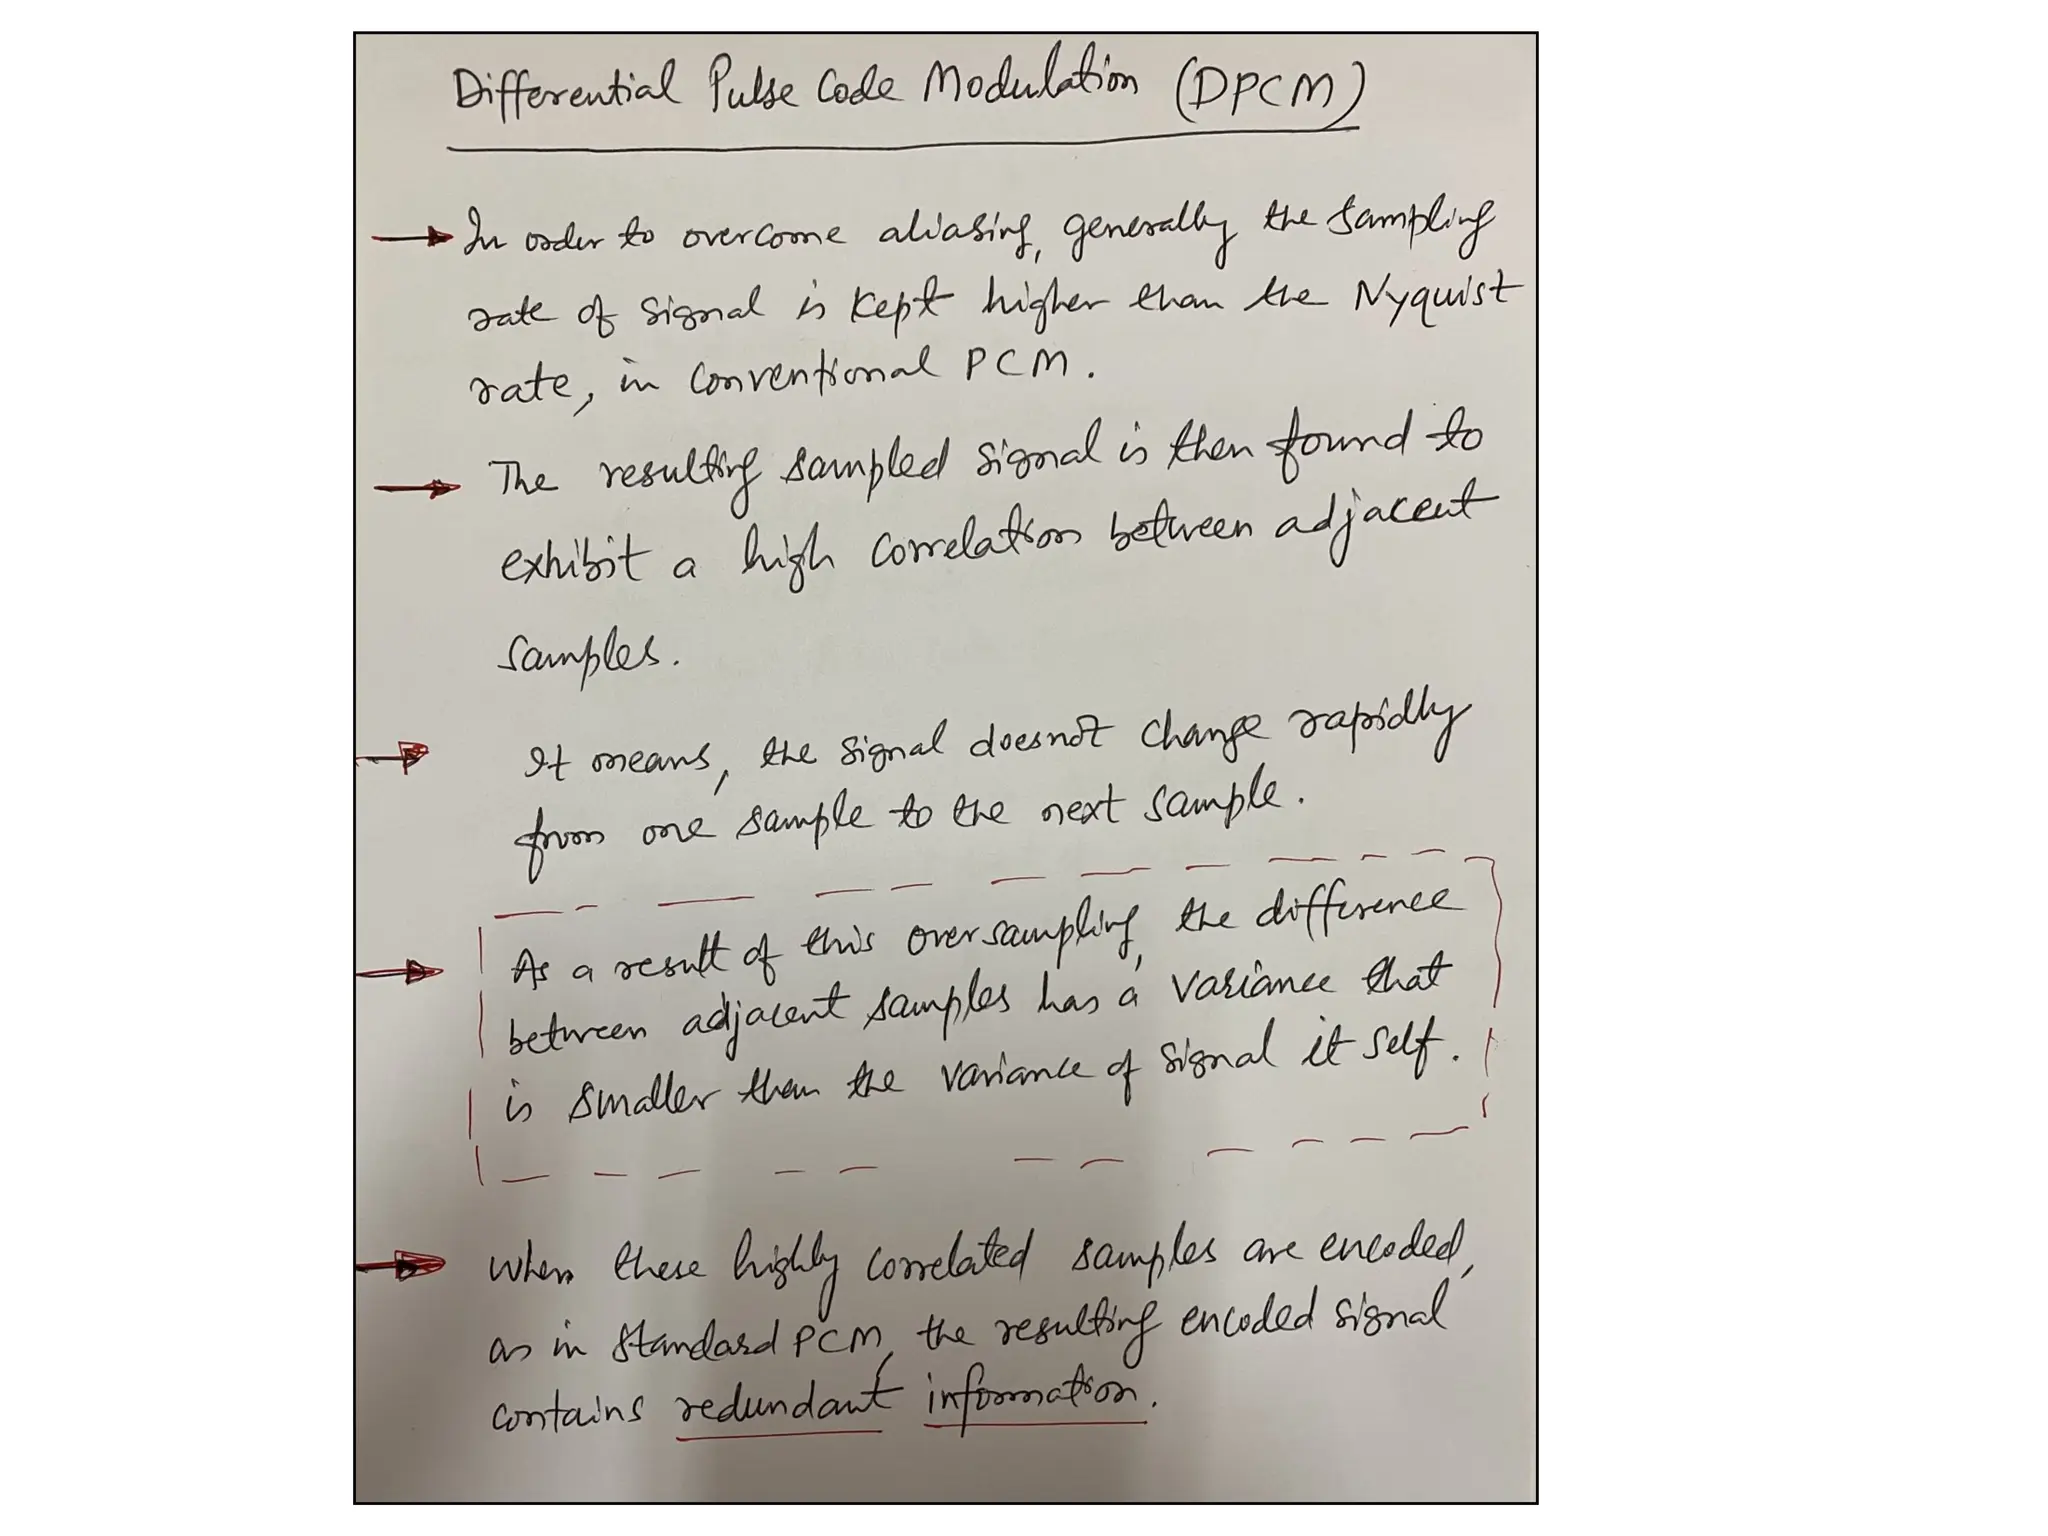 Differential Pulse Code Modulation (DPCM)
In order to overcome aliasing, generally the sampling
rate of signal is kept higher than the Nyquist
rate, in conventional PCM.
The resulting sampled signal is then found to
exhibit a high correlation between adjacent
samples.
It means, the signal doesnot change rapidly
from one sample to the next sample.
As a result of this oversampling, the difference
between adjacent samples has a variance that
is smaller than the variance of signal it self.
When these highly correlated samples are encoded,
as in standard PCM, the resulting encoded signal
contains redundant information.